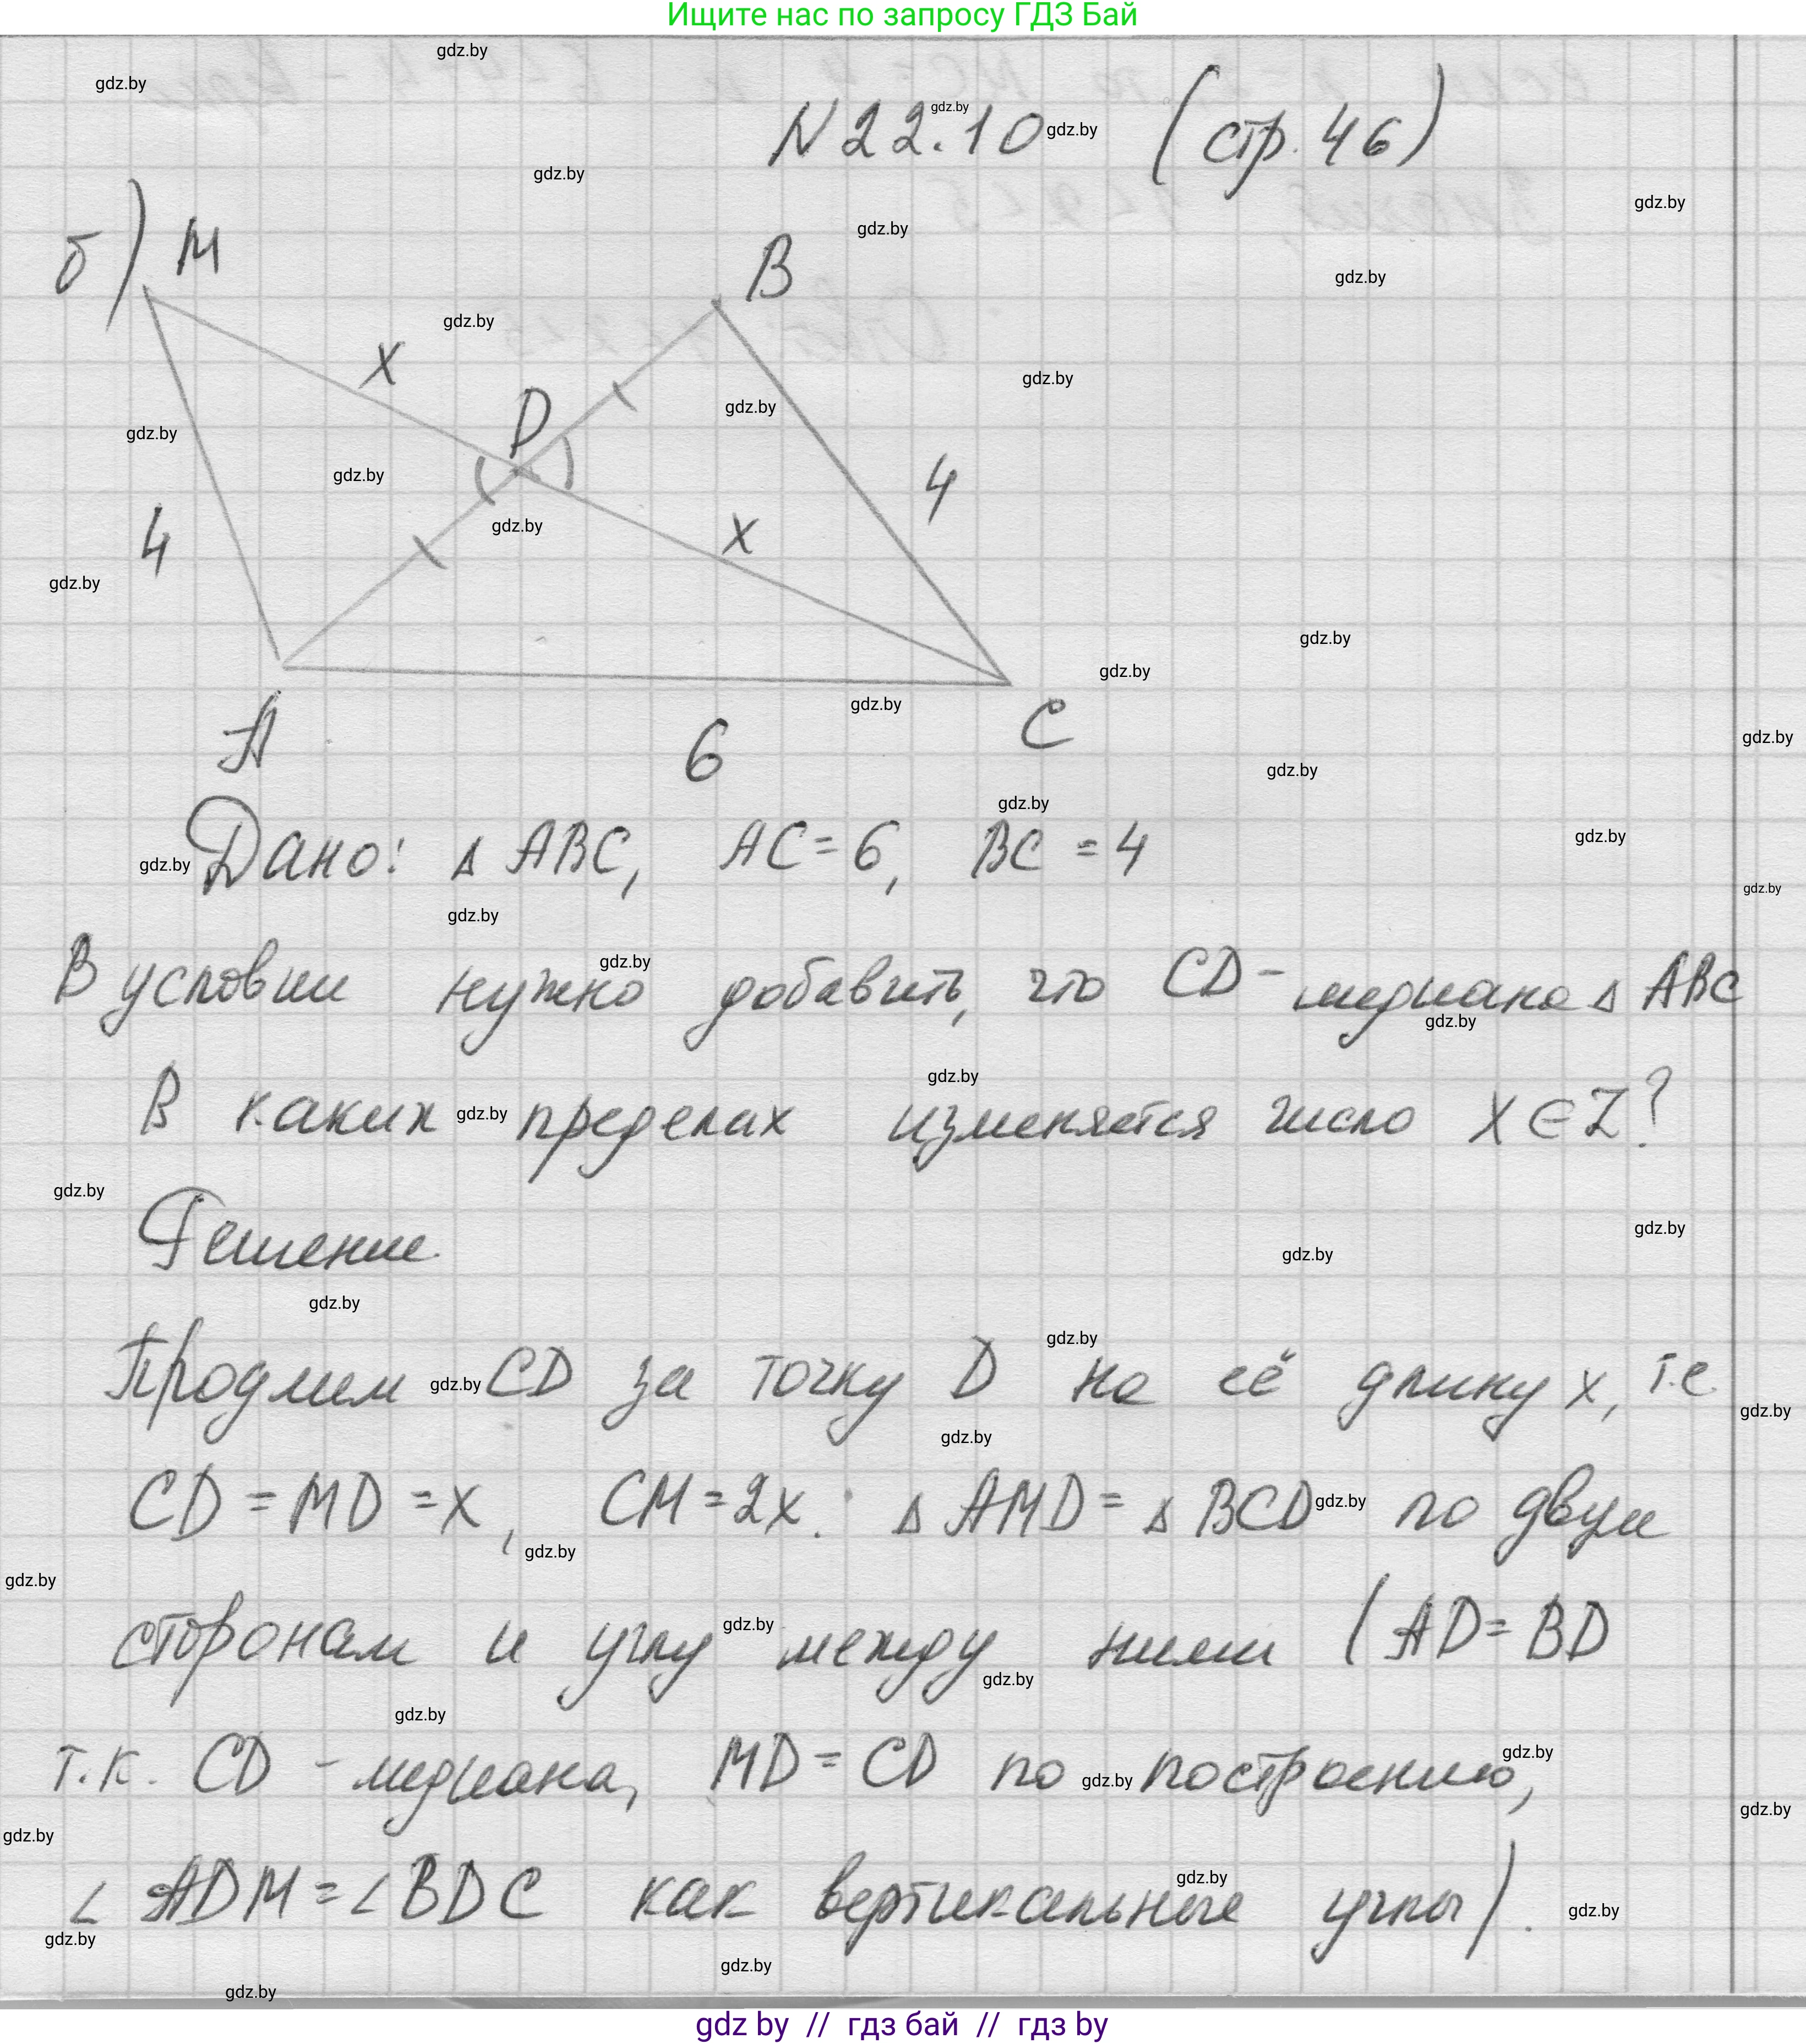 Ищите нас по запросу ГДЗ Бай
N 22.10 (стр. 46)
б)
M
B
x
D
4
4
x
A
C
6
Дано: Δ ABC, AC = 6, BC = 4
В условии нужно добавить, что CD - медиана Δ ABC
В каких пределах изменяется число x ∈ Z?
Решение
Продлим CD за точку D на её длину x, т.е.
CD = MD = x, CM = 2x. Δ AMD = Δ BCD по двум
сторонам и углу между ними (AD = BD
т.к. CD - медиана, MD = CD по построению,
∠ ADM = ∠ BDC как вертикальные углы).
gdz by // гдз бай // гдз by